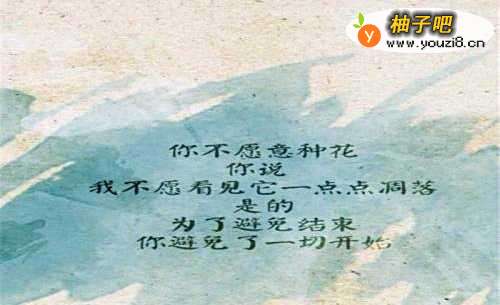 柚子吧
www.youzi8.cn
你不愿意种花
你说
我不愿看见它一点点凋落
是的
为了避免结束
你避免了一切开始